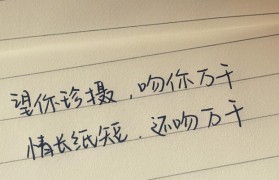 望你珍摄，吻你万千
情长纸短，还吻万千